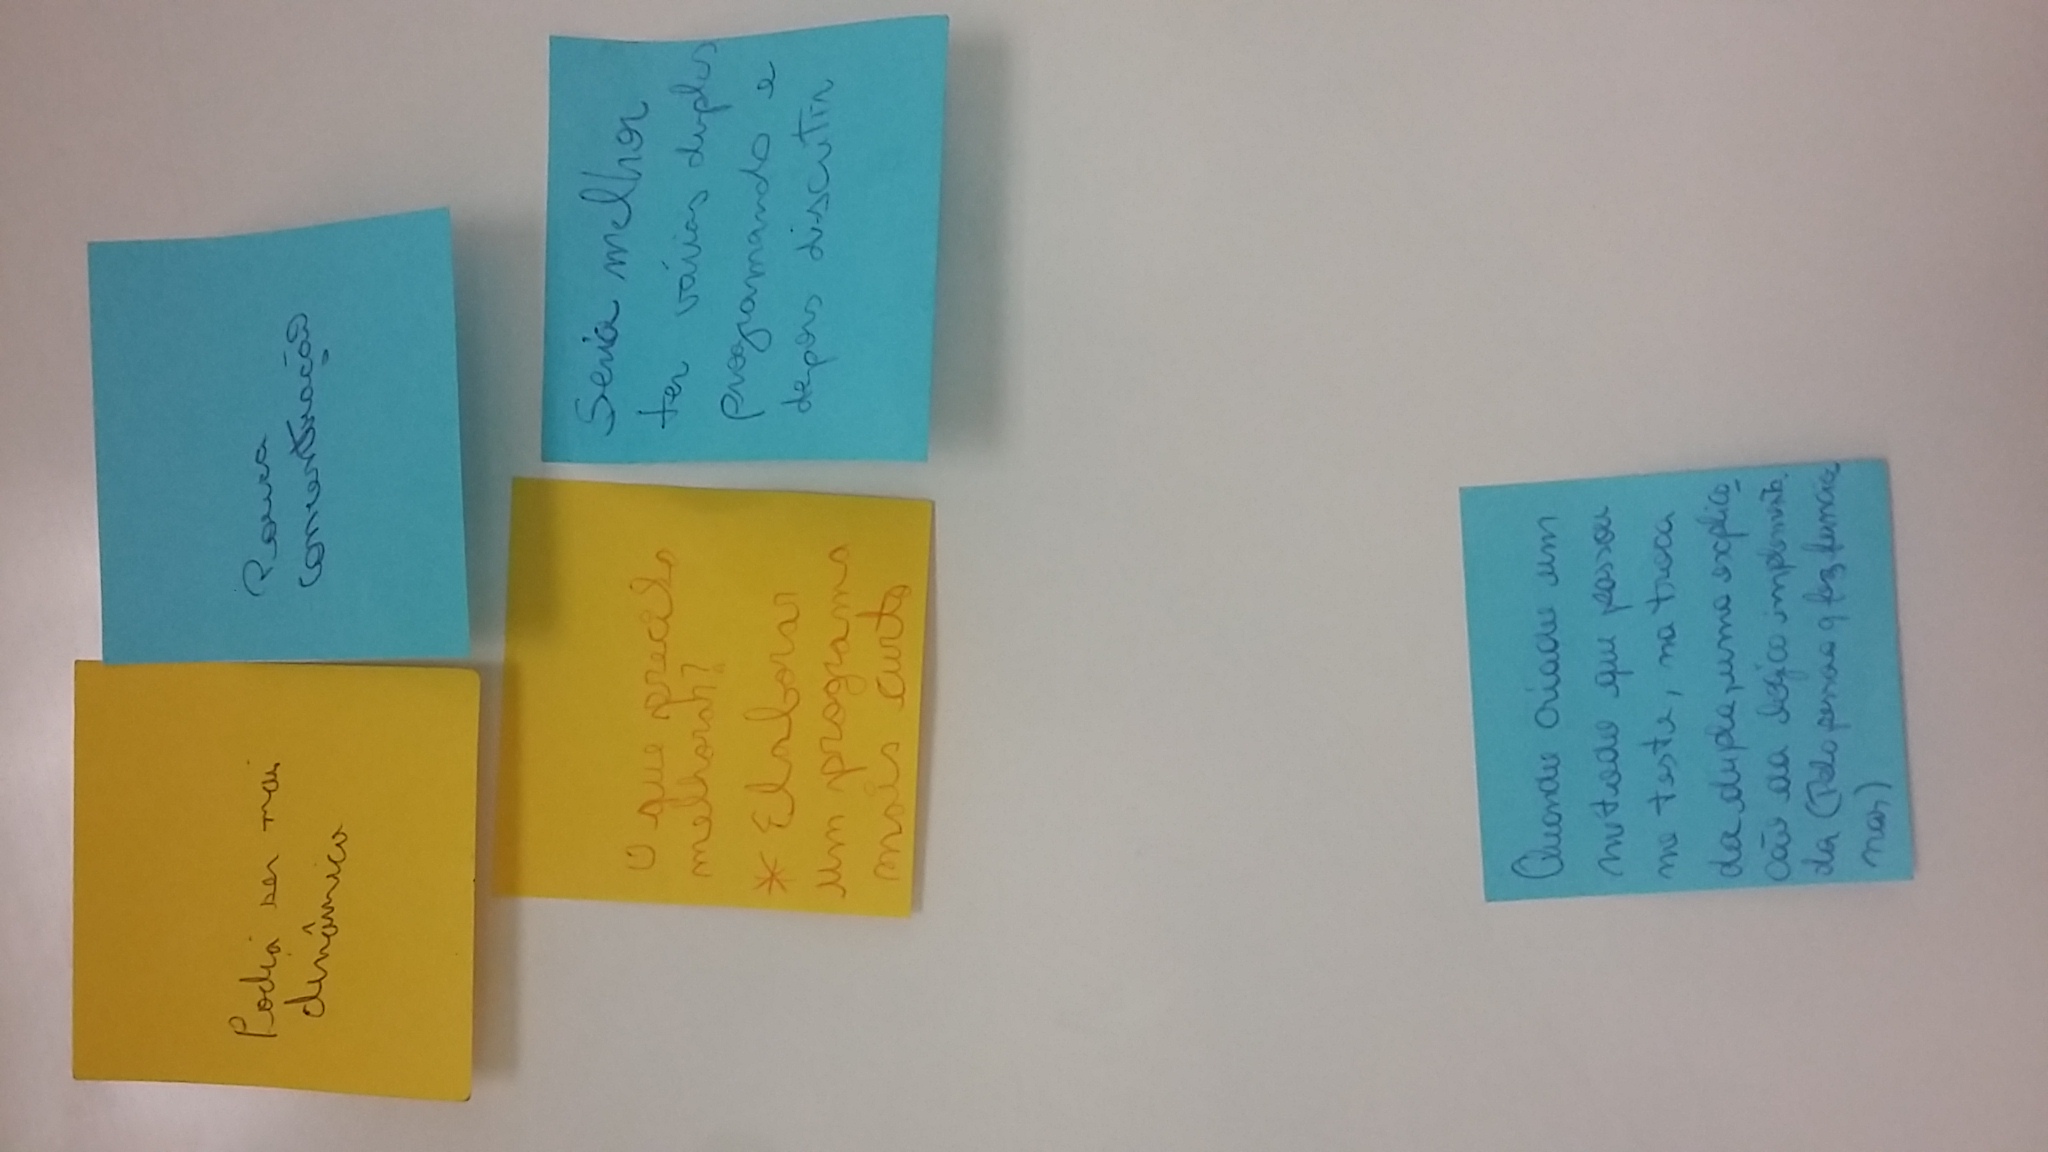 Podia ser mais
dinâmico
Pouca
concentração
O que preciso
melhorar?
* Elaborar
um programa
mais curto
Seria melhor
ter várias duplas
programando e
depois discutir
Quando criado um
metodo que passou
no teste, na troca
da dupla, uma explica
ção da lógica implementa
da (Pela pessoa q fez funcio
nar)